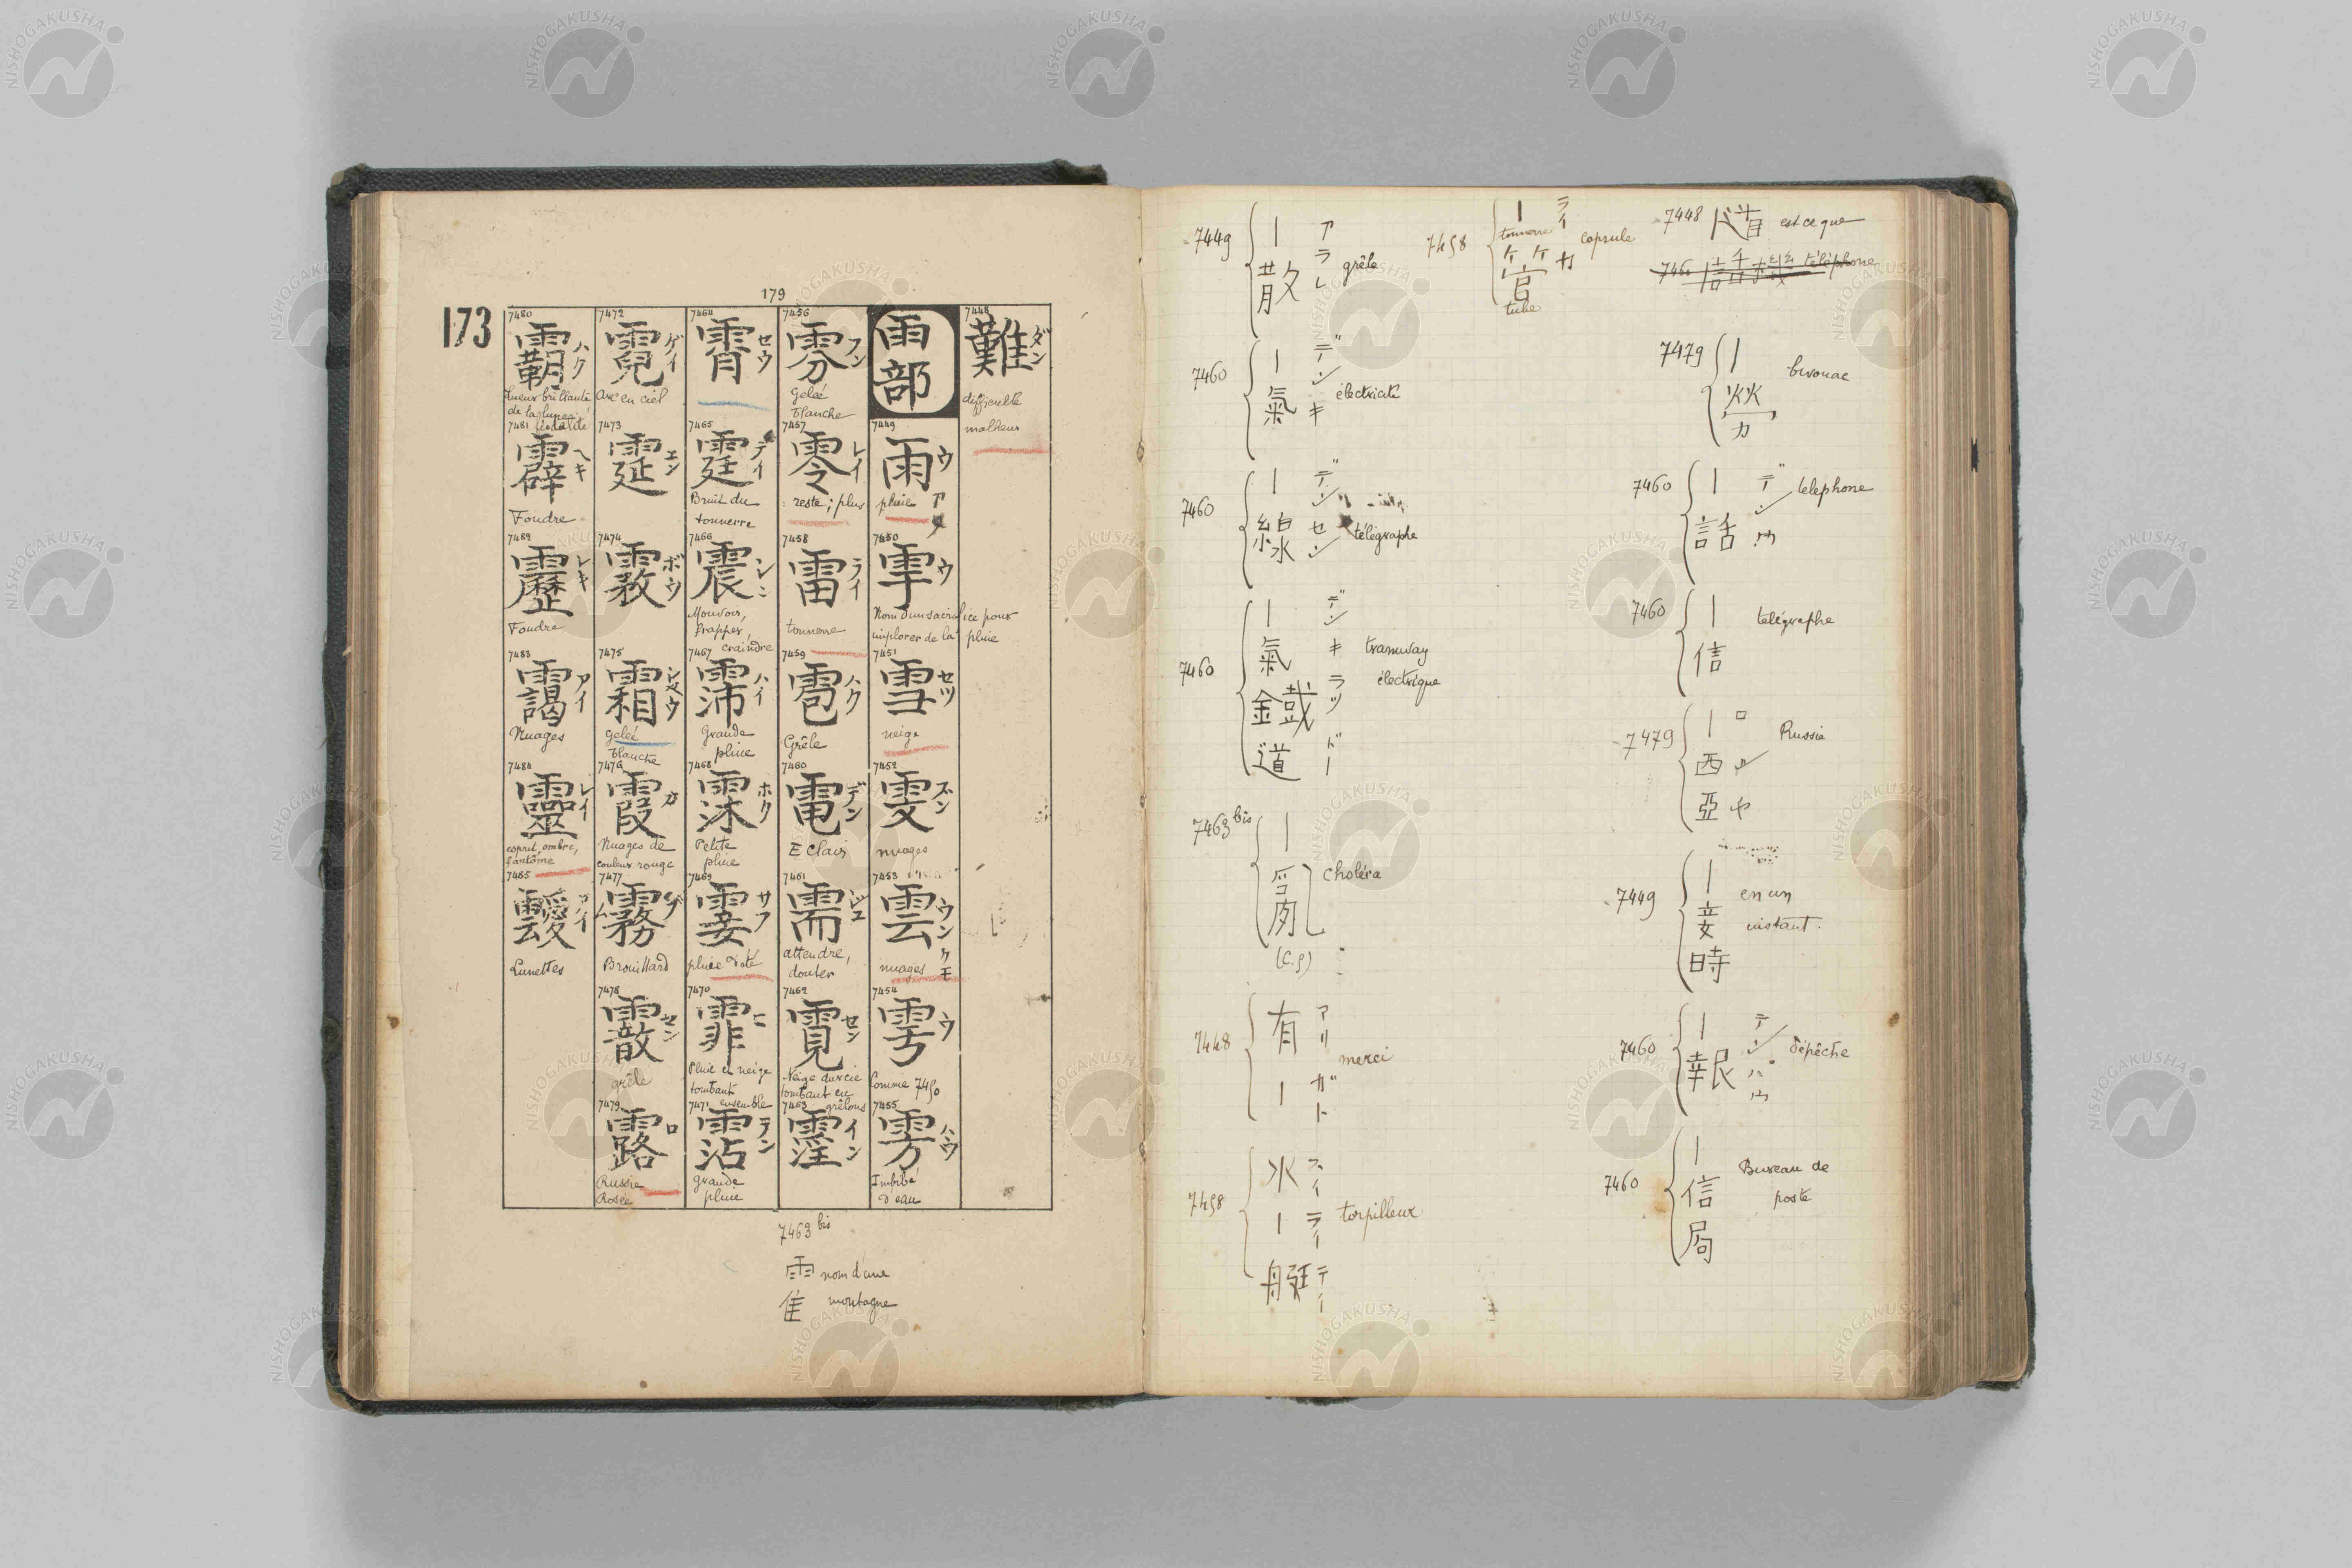 179
173
7448
難 ダン
difficulté
malheur
雨部
7449
雨 ウ
pluie アメ
7450
雩 ウ
Nom d'un sacrifice pour
implorer de la pluie
7451
雪 セツ
neige
7452
雯 ブン
nuages
7453
雲 ウン
nuages クモ
7454
雩 ウ
Comme 7450
7455
雱 ハウ
Imbibé
d'eau
7456
雰 フン
Gelée
blanche
7457
零 レイ
reste; plus
7458
雷 ライ
tonnerre
7459
雹 ハク
Grêle
7460
電 デン
Eclair
7461
需 ジユ
attendre,
douter
7462
覔 セン
Neige durcie
tombant en
grêlons
7463
霪 イン
7464
霄 セウ
7465
霆 テイ
Bruit du
tonnerre
7466
震 シン
Mouvoir,
frapper,
craindre
7467
霈 ハイ
Grande
pluie
7468
霂 ホク
Petite
pluie
7469
霎 サフ
pluie d'été
7470
霏 ヒ
Pluie et neige
tombant
ensemble
7471
霑 テン
grande
pluie
7472
霓 ゲイ
Arc en ciel
7473
霆 エン
7474
霚 ボウ
7475
霜 シヤウ
Gelée
blanche
7476
霞 カ
Nuages de
couleur rouge
7477
霧 ム
Brouillard
7478
霰 セン
grêle
7479
露 ロ
Russie
Rosée
7480
霸 ハク
Lueur brillante
de la lune;
7481
霹 ヘキ
Foudre
7482
靂 レキ
Foudre
7483
靄 アイ
Nuages
7484
靈 レイ
esprit, ombre,
fantôme
7485
靉 アイ
Lunettes
7463 bis
隺 nom d'une
montagne
7449 | 散 アラレ grêle
7460 | 氣 デンキ électricité
7460 | 線 デンセン télégraphe
7460 | 氣鐵道 デンキ tramway
électrique
7463 bis | choléra
7448 有 | アリガト merci
7458 水 | 艇 スイライテイ torpilleur
7458 | 管 ライカ capsule
tonnerre
tube
7448 est ce que
téléphone
7479 | 營 bivouac
7460 | 話 デンワ téléphone
7460 | 信 télégraphe
7479 | 西亞 ロシヤ Russia
7449 | 霎時 en un
instant.
7460 | 報 デンパウ dépêche
7460 | 信局 Bureau de
poste
NISHOGAKUSHA